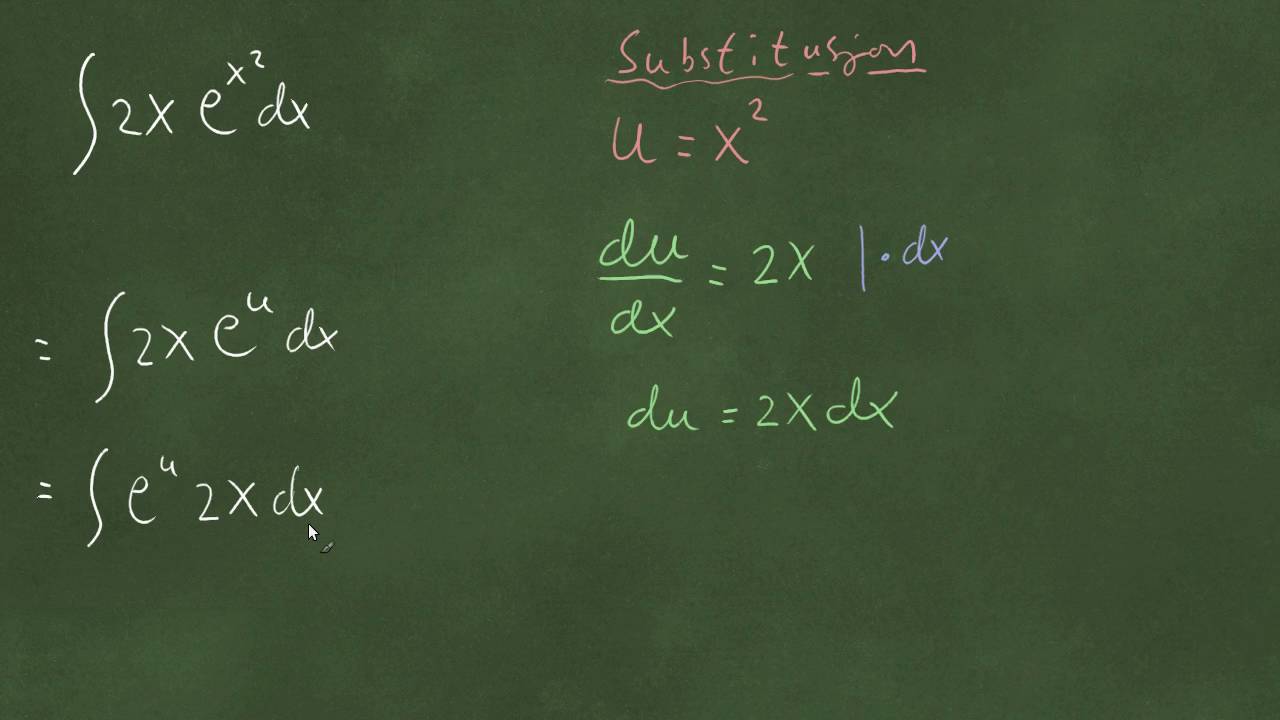 ∫ 2x e^{x^2} dx
= ∫ 2x e^u dx
= ∫ e^u 2x dx
Substitusjon
u = x^2
du/dx = 2x | · dx
du = 2x dx